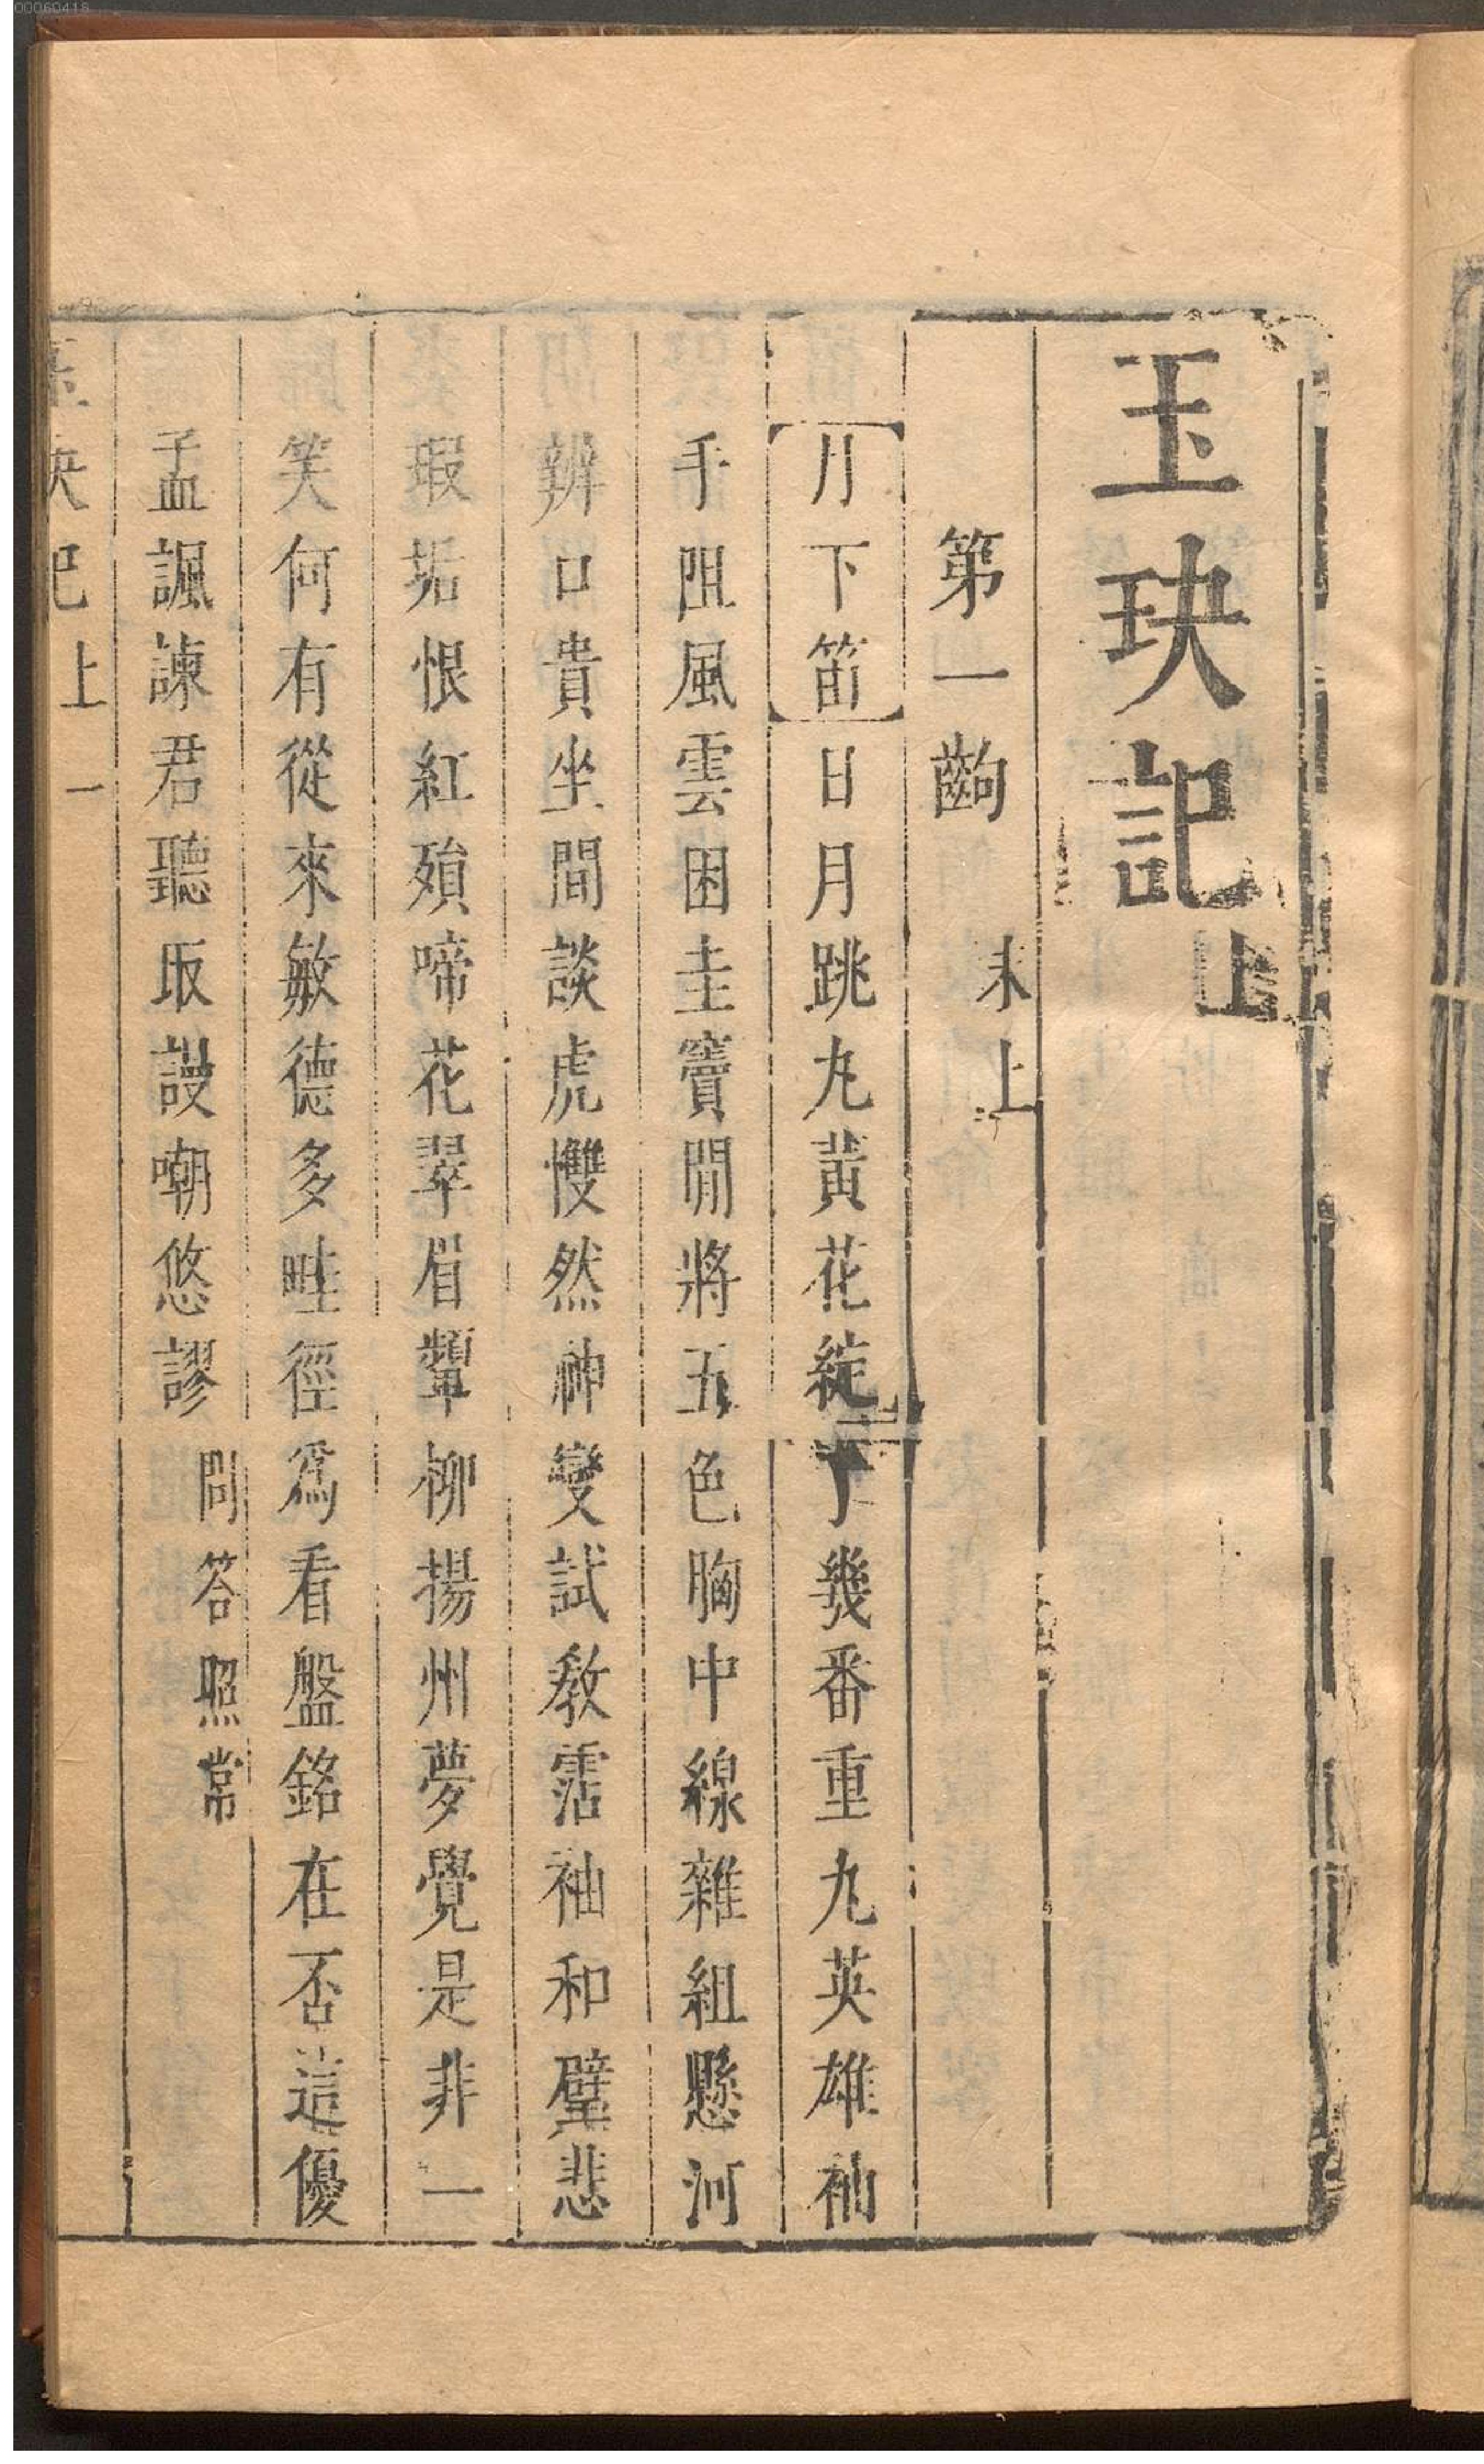 00060418
玉玦記上
第一齣
末上
月下笛日月跳丸黃花綻了幾番重九英雄袖
手阻風雲困圭竇閒將五色胸中線雜組懸河
辨口貴坐間談虎㦬然神變試敎霑袖和璧悲
瑕垢恨紅殞啼花翠眉顰柳揚州夢覺是非一
笑何有從來敏德多畦徑爲看盤銘在否這優
孟諷諫君聽取謾嘲悠謬
問答照常
玉玦記上 一